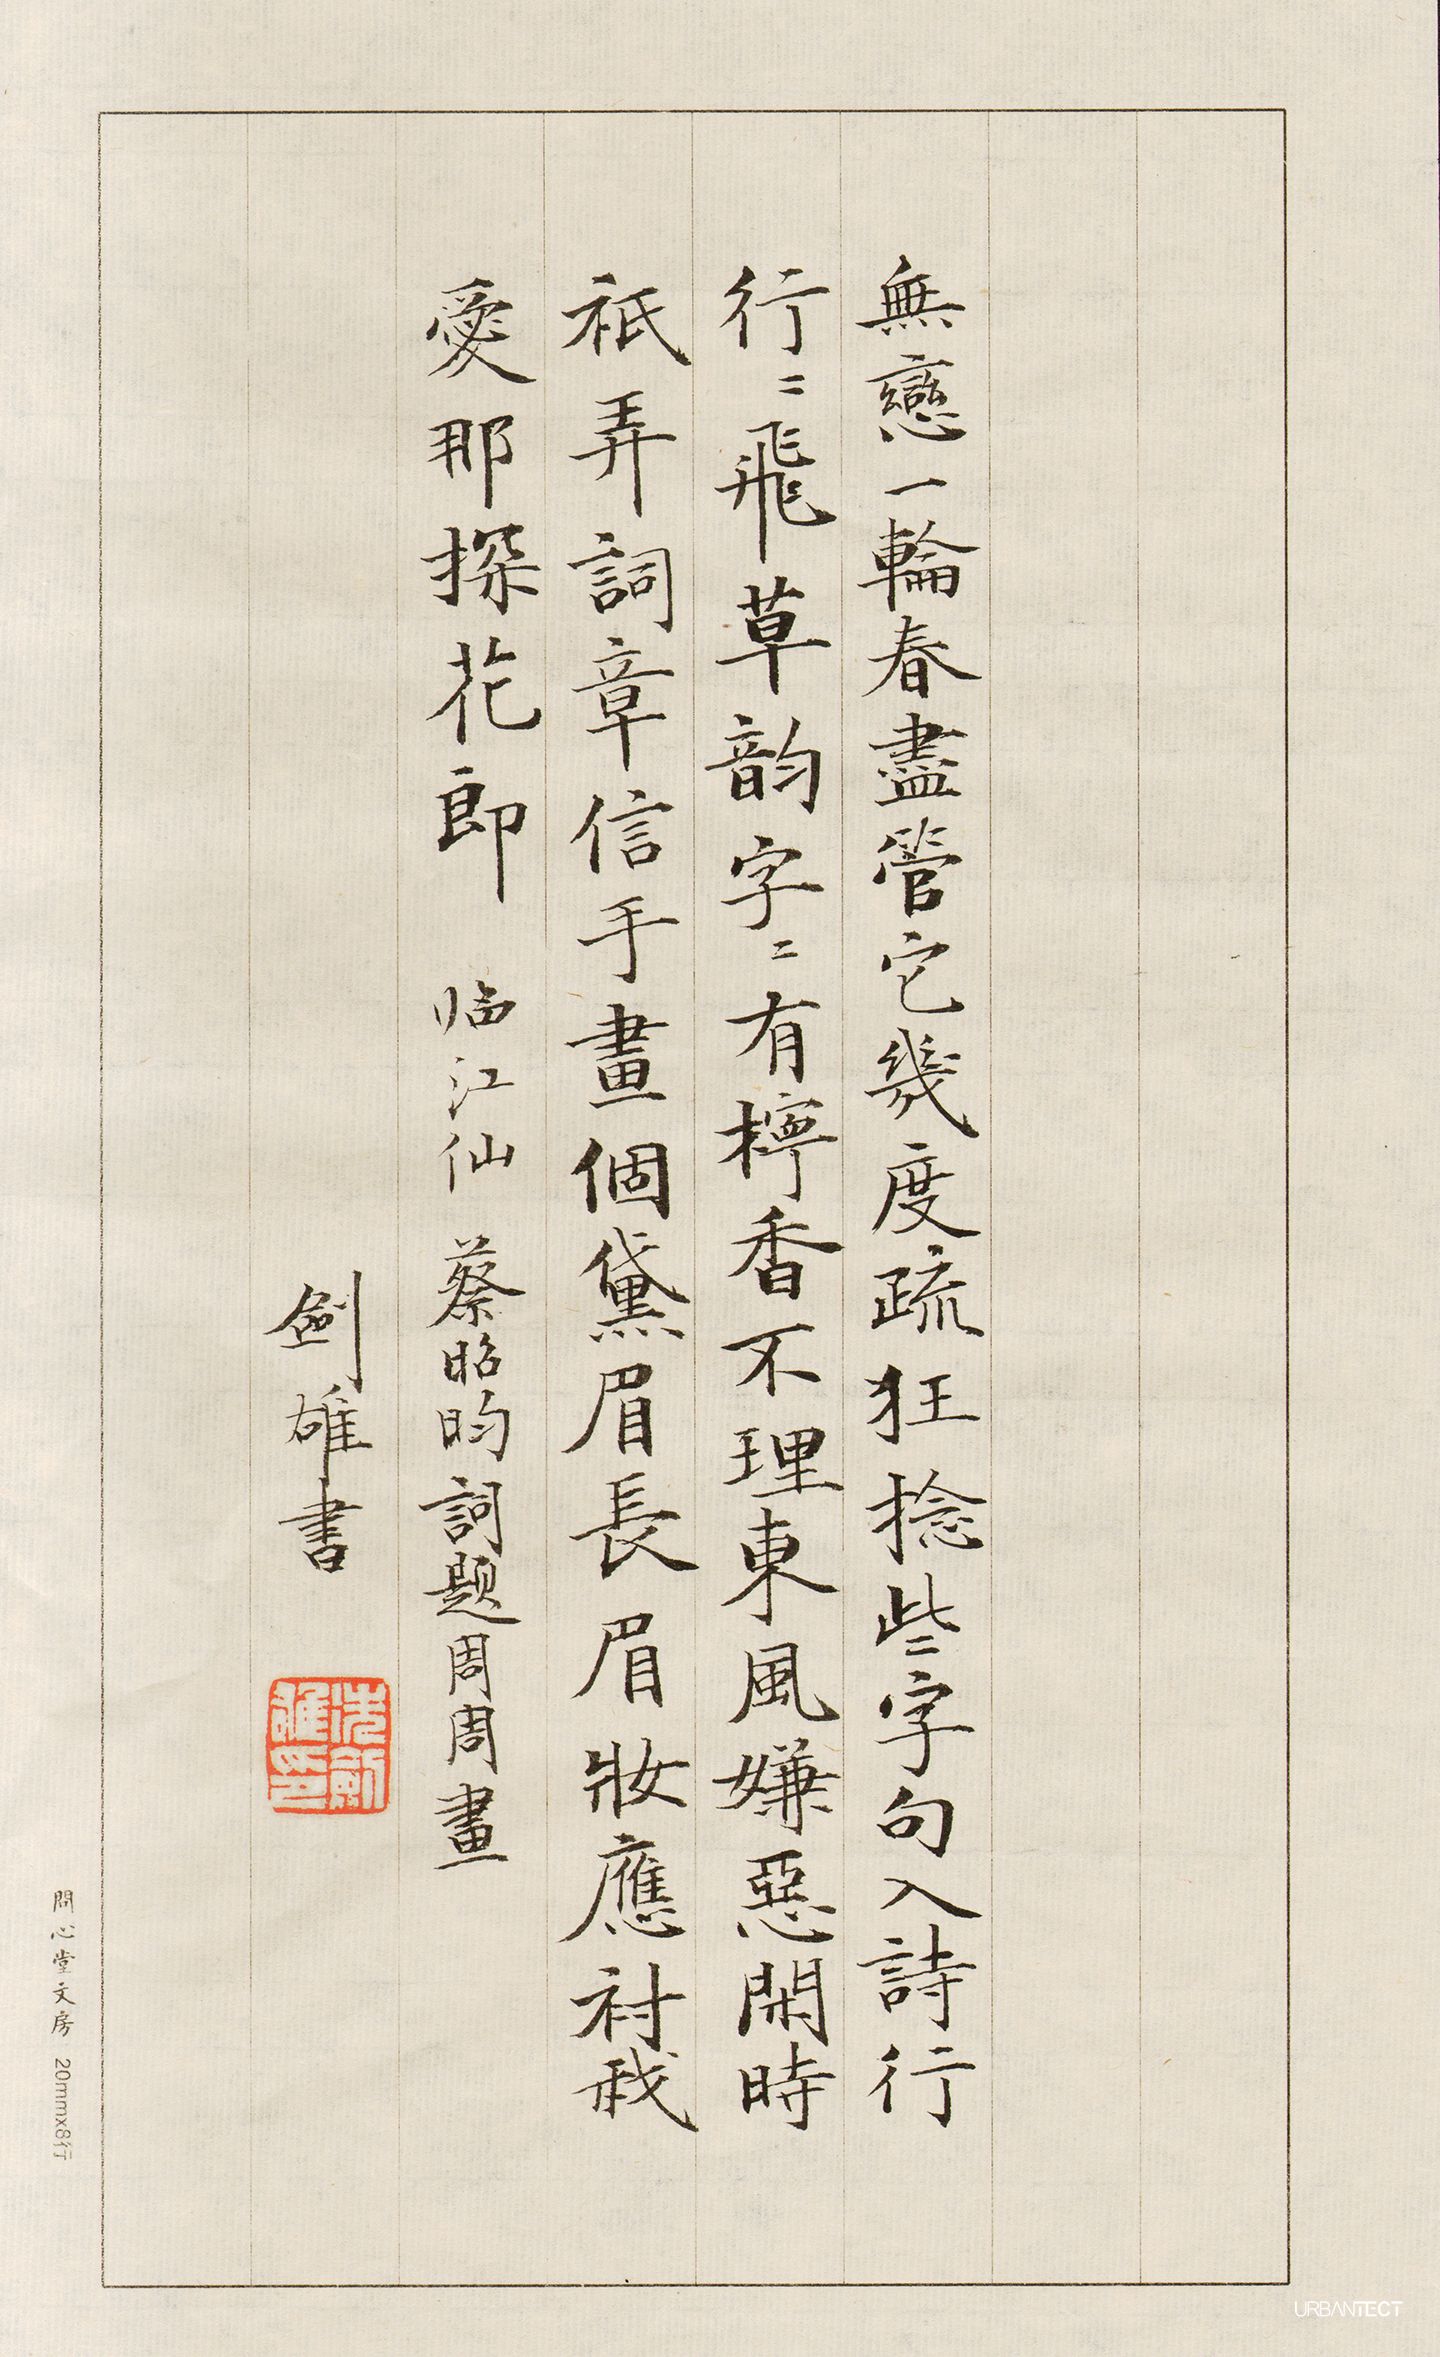 無戀一輪春盡管它幾度疏狂捻些字句入詩行
行〻飛草韵字〻有檸香不理東風嫌惡閑時
祇弄詞章信手畫個黛眉長眉妝應衬我
愛那探花郎 临江仙 蔡昭昀詞题周周畫
劍雄書
冼劍雄印
問心堂文房 20mmx8行
URBANTECT